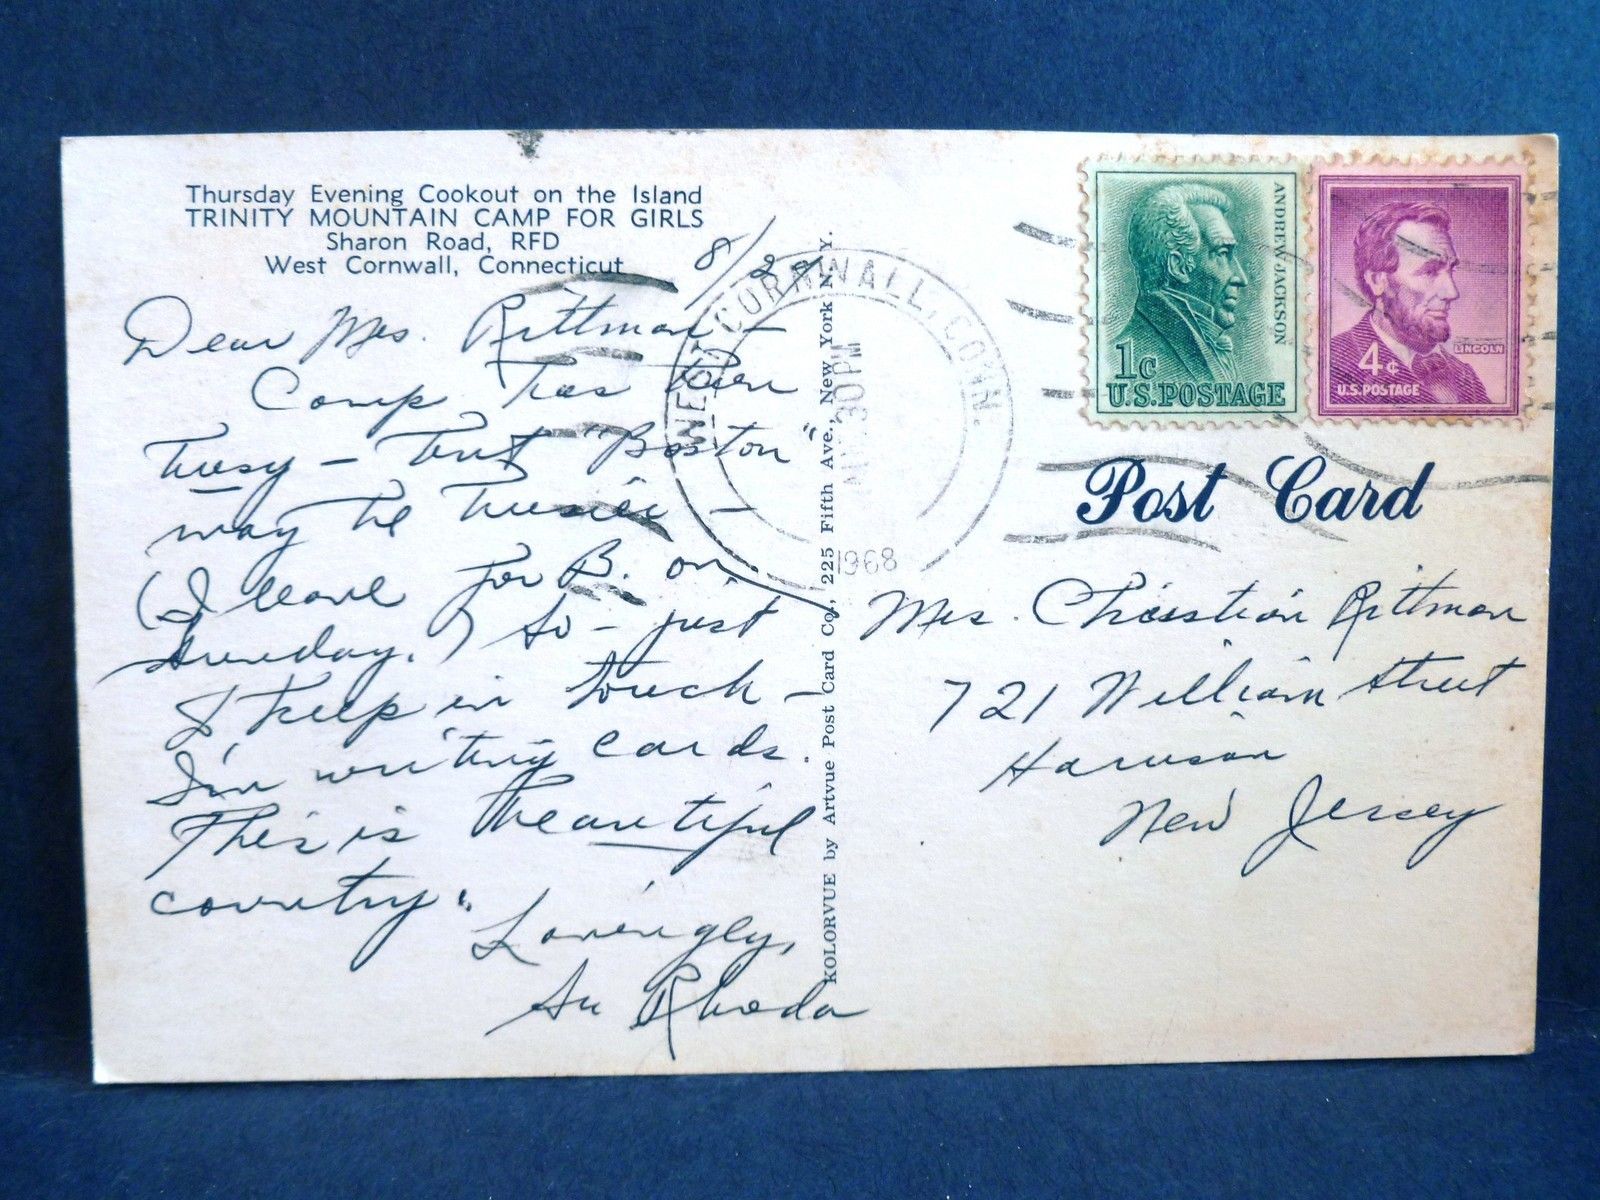 Thursday Evening Cookout on the Island
TRINITY MOUNTAIN CAMP FOR GIRLS
Sharon Road, RFD
West Cornwall, Connecticut
8/27
Dear Mrs. Rittman -
Camp has been
busy - but "Boston"
may be busier -
(I leave for B. on
Sunday.) So - just
to keep in touch -
I'm writing cards.
This is beautiful
country.
Lovingly,
Sr Rhoda
KOLORVUE by Artvue Post Card Co., 225 Fifth Ave., New York N. Y.
WEST CORNWALL, CONN.
30 PM
1968
ANDREW JACKSON
1c
U.S. POSTAGE
LINCOLN
4c
U.S. POSTAGE
Post Card
Mrs. Christian Rittman
721 William Street
Harrison
New Jersey